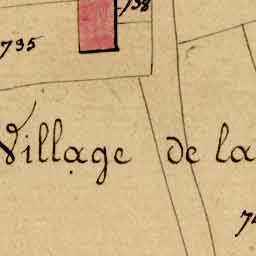 738
735
Village de la